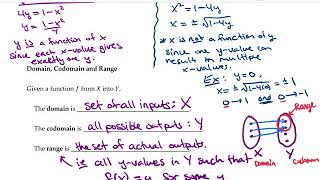 4y = 1-x²
y = 1-x²/4
y is a function of x
since each x-value gives
exactly one y.
x² = 1-4y
x = ± √1-4y
* x is not a function of y
since one y-value can
result in multiple
x-values.
Ex: y=0,
x = ± √1-4(0) = ± 1
0 → 1 and 0 → -1
Domain, Codomain and Range
Given a function f from X into Y,
The domain is set of all inputs: X
The codomain is all possible outputs: Y
The range is the set of actual outputs.
is all y-values in Y such that
f(x) = y for some
Range
X Y
Domain Codomain